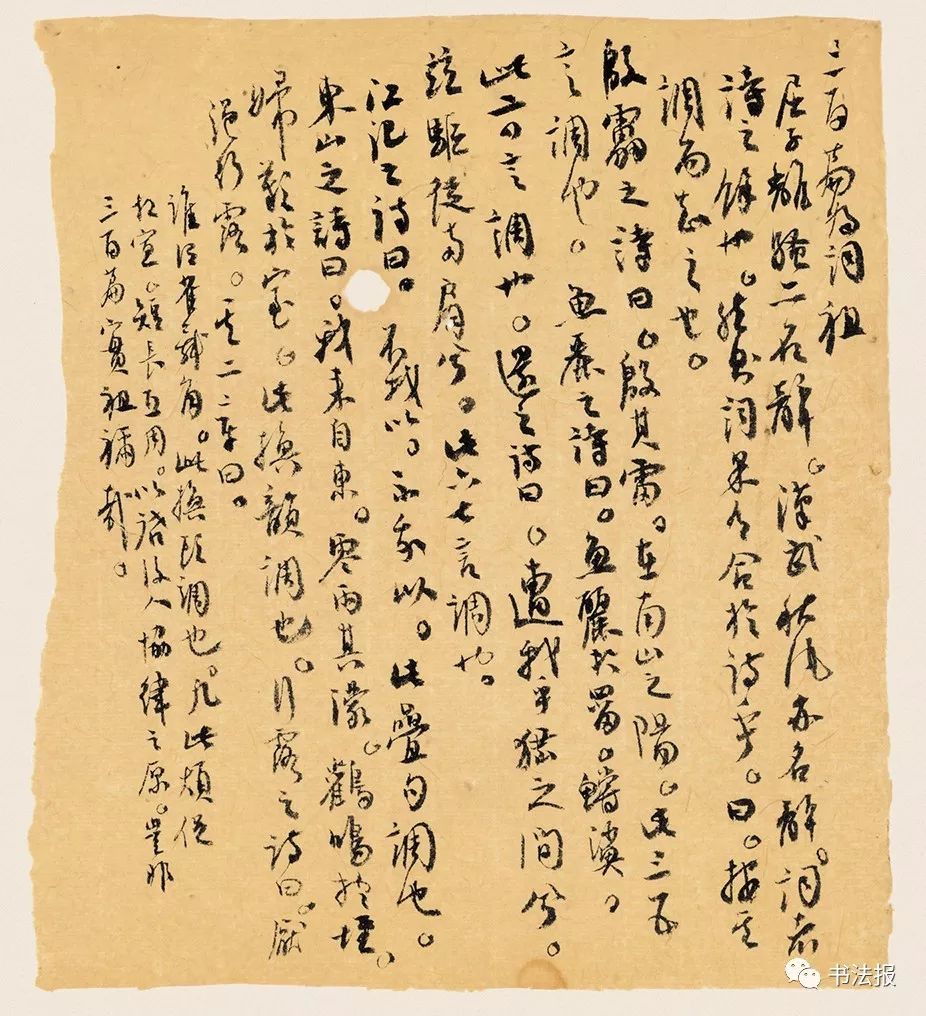 三百篇為詞祖
屈子離騷亦名辭。漢武秋風亦名辭。詞者
詩之餘也。然則詞果有合於詩乎。曰。按其
調而知之也。
殷靁之詩曰。殷其雷。在南山之陽。此三五
言調也。魚麗之詩曰。魚麗於罶。鱨鯊。
此二四言調也。還之詩曰。遭我乎峱之間兮。
並驅從兩肩兮。此六七言調也。
江汜之詩曰。不我以。不我以。此疊句調也。
東山之詩曰。我來自東。零雨其濛。鸛鳴於垤。
婦歎於室。此換韻調也。行露之詩曰。厭
浥行露。其二章曰。
誰謂雀無角。此換頭調也。凡此煩促
相宣。短長互用。以啟後人協律之原。豈非
三百篇實祖禰哉。
书法报